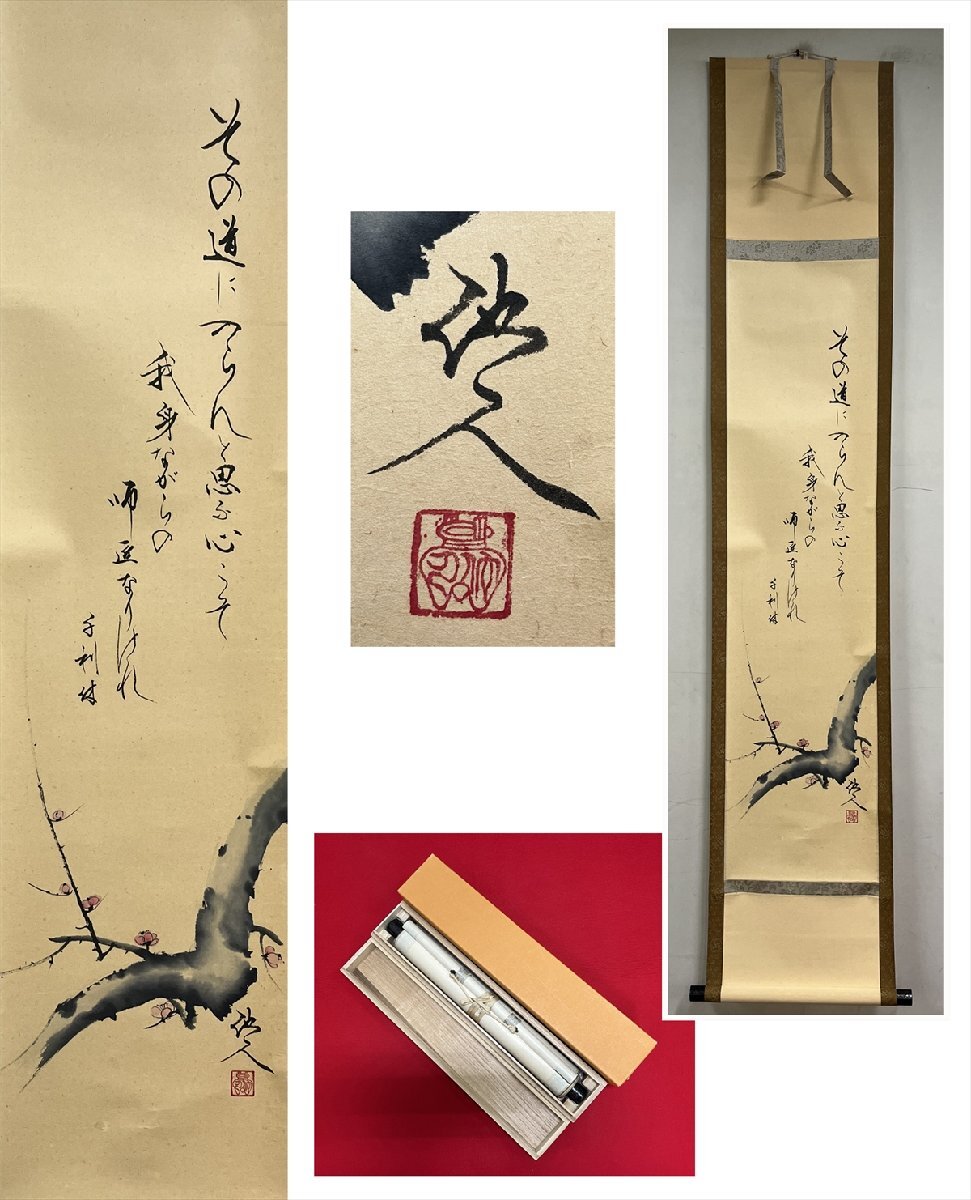 その道に入らんと思ふ心こそ
我身ながらの
師匠なりけれ
千利休
その道に入らんと思ふ心こそ
我身ながらの
師匠なりけれ
千利休